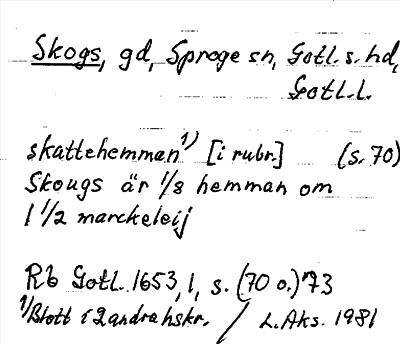 Skogs, gd, Sproge sn, Gotl. s. hd,
Gotl. l.
skattehemman 1) [i rubr.] (s. 70)
Skougs är 1/8 hemman om
1 1/2 marckeleij
Rb Gotl. 1653, 1, s. (70 o.) 73
1) Blott i 2 andra hskr. / L. Aks. 1981